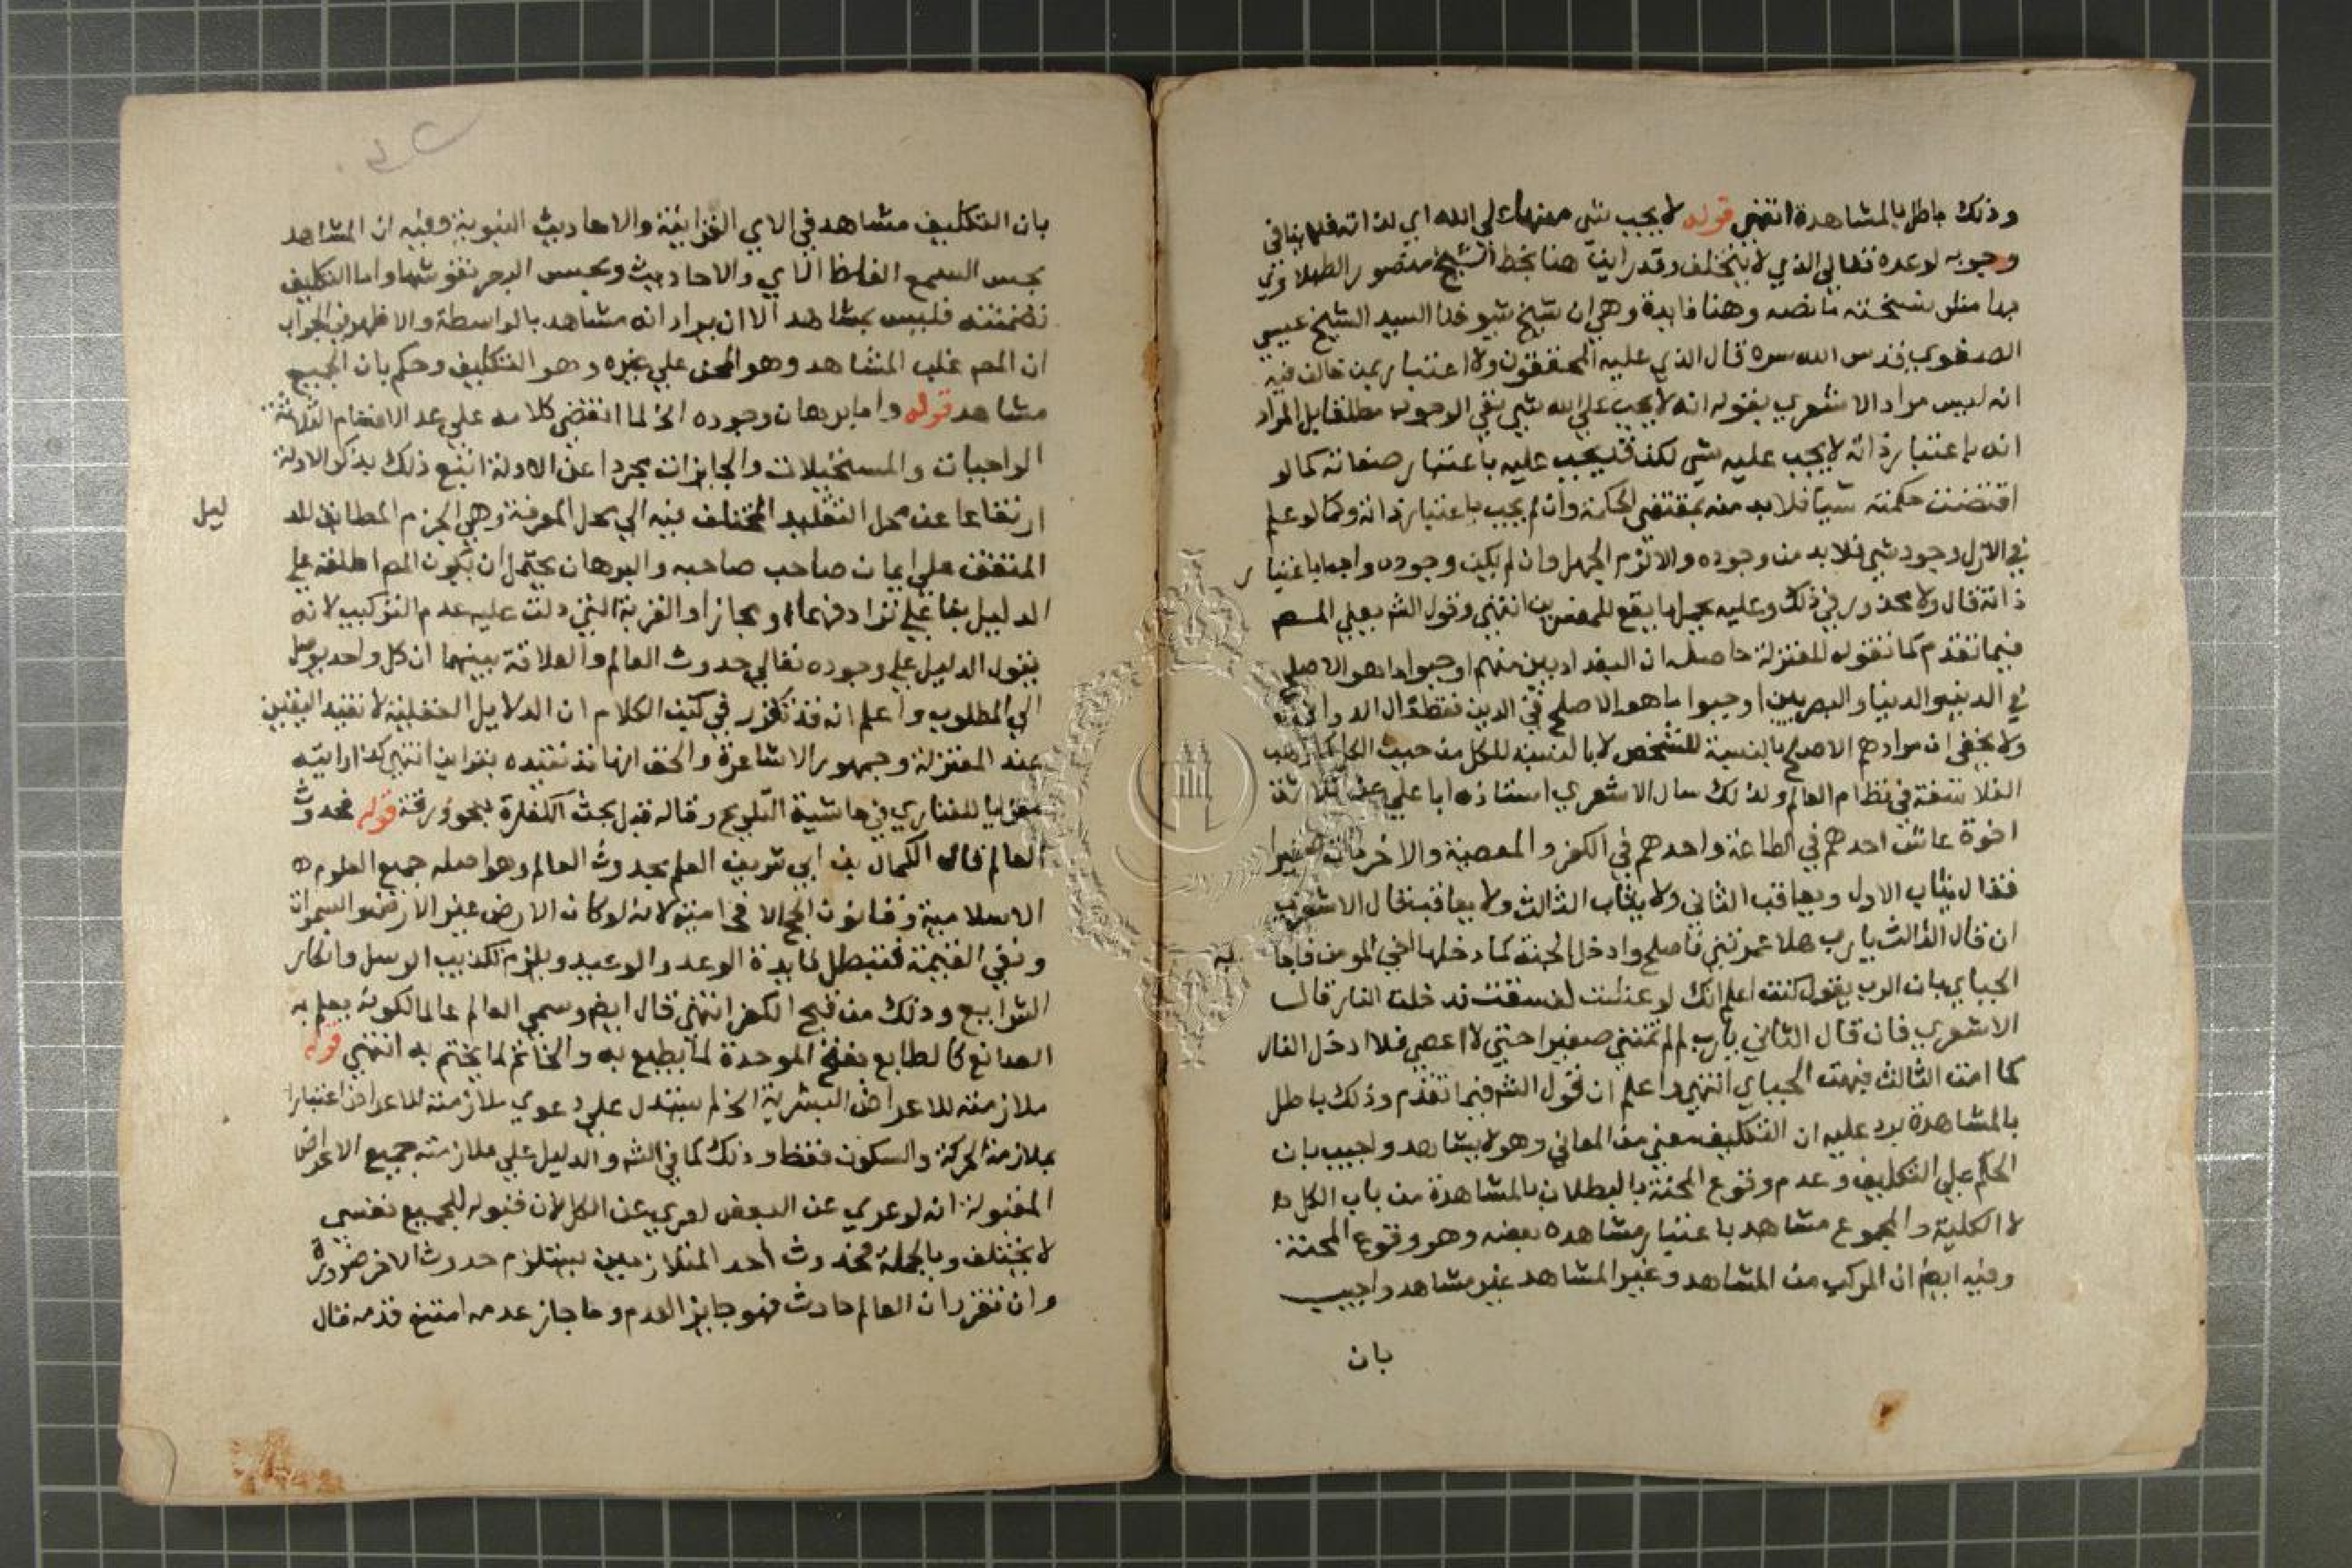 وذلك باطل بالمشاهدة انتهى قوله لا يجب شي منها على الله اي لذاته فلا ينافي
وجوبه لوعده تعالى الذي لا يتخلف وقد رايت هنا بخط الشيخ منصور الطبلاوي
بهامش نسخته ما نصه وهنا فايدة وهي ان شيخ شيوخنا السيد الشيخ عيسي
الصفوي قدس الله سره قال الذي عليه المحققون ولا اعتبار بمن خالف فيه
انه ليس مراد الاشعري بقوله انه لا يجب على الله شي نفي الوجوب مطلقا بل المراد
انه باعتبار ذاته لا يجب عليه شي لكن قد يجب عليه باعتبار صفاته كما لو
اقتضت حكمته شيا فلا بد منه بمقتضي الحكمة وان لم يجب باعتبار ذاته وكما لو علم
في الازل وجود شي فلا بد من وجوده والا لزم الجهل وان لم يكن وجوده واجبا باعتبار
ذاته قال ولا محذور في ذلك وعليه يحمل ما يقع للمفسرين انتهى وقول الشه يعني المص
فيما تقدم كما تقوله المعتزلة حاصله ان البغداديين منهم اوجبوا ما هو الاصلح
في الدين والدنيا والبصريين اوجبوا ما هو الاصلح في الدين فقط قال الدواني
ولا يخفى ان مرادهم الاصلح بالنسبة للشخص لا بالنسبة للكل من حيث الكل كما ذهب
الفلاسفة في نظام العالم ولذلك سال الاشعري استاذه ابا علي عن ثلاثة
اخوة عاش احدهم في الطاعة واحدهم في الكفر والمعصية والاخر مات صغيرا
فقال يثاب الاول ويعاقب الثاني ولا يثاب الثالث ولا يعاقب فقال الاشعري
ان قال الثالث يا رب هلا عمرتني فاصلح وادخل الجنة كما دخلها اخي المومن فاجابه
الجباي بان الرب يقول كنت اعلم انك لو عشت لفسقت فدخلت النار قال
الاشعري فان قال الثاني يا رب لم لم تمتني صغيرا حتي لا اعصي فلا ادخل النار
كما امت الثالث فبهت الجباي انتهى واعلم ان قول الشه فيما تقدم وذلك باطل
بالمشاهدة يرد عليه ان التكليف معني من المعاني وهو لا يشاهد واجيب بان
الحكم على التكليف وعدم وقوع المحنة بالبطلان بالمشاهدة من باب الكل
لا الكلية والمجموع مشاهد باعتبار مشاهده بعضه وهو وقوع المحنة
وفيه ايضا ان المركب من المشاهد وغير المشاهد غير مشاهد واجيب
بان
بان التكليف مشاهد في الاي القرانية والاحاديث النبوية وفيه ان المشاهد
بحس السمع الفاظ الاي والاحاديث وبحس البصر نقوشها واما التكليف
تضمنته فليس بمشاهد الا ان يراد انه مشاهد بالواسطة والاظهر في الجواب
ان المص غلب المشاهد وهو المحن علي غيره وهو التكليف وحكم بان الجميع
مشاهد قوله واما برهان وجوده الخ لما انقضي كلامه علي عد الاقسام الثلاثة
الواجبات والمستحيلات والجايزات مجردا عن الادلة اتبع ذلك بذكر الادلة
ارتفاعا عن محل التقليد المختلف فيه الي محل المعرفة وهي الجزم المطابق للد
ليل
المتفق علي ايمان صاحب صاحبه والبرهان يحتمل ان يكون المص اطلقه علي
الدليل بنا علي ترادفهما او مجازا والقرينة التي دلت عليه عدم التركيب لانه
يقول الدليل علي وجوده تعالي حدوث العالم والعلاقة بينهما ان كل واحد يوصل
الي المطلوب واعلم انه قد تقرر في كتب الكلام ان الدلايل النقلية لا تفيد اليقين
عند المعتزلة وجمهور الاشاعرة والحق انها قد تفيده بقراين انتهى كذا رايته
معزيا للفناري في حاشية التلويح وقاله قبل بحث الكفارة بنحو ورقة قوله فحدوث
العالم قال الكمال بن ابي شريف العلم بحدوث العالم وهو اصله جميع العلوم
الاسلامية وقانون الحج الافحامية لانه لو كان الارض غير الارض والسموات
ونفي القيمة فتبطل فايدة الوعد والوعيد ويلزم تكذيب الرسل وانكار
الشرايع وذلك من قبح الكفر انتهى قال ايضا وسمي العالم عالما لكونه يعلم به
الصانع كالطابع بفتح الموحدة لما يطبع به والخاتم لما يختم به انتهى قوله
ملازمته للاعراض البشرية الخ لم يستدل علي دعوي ملازمته للاعراض اعتبارا
بملازمة الحركة والسكون فقط وذلك كما في الشه والدليل علي ملازمته جميع الاعراض
المقبولة انه لو عري عن البعض لعري عن الكل لان قبوله للجميع نفسي
لا يختلف وبالجملة فحدوث احد المتلازمين يستلزم حدوث الاخر ضرورة
وان تقرر ان العالم حادث فهو جايز العدم وما جاز عدمه امتنع قدمه فقال